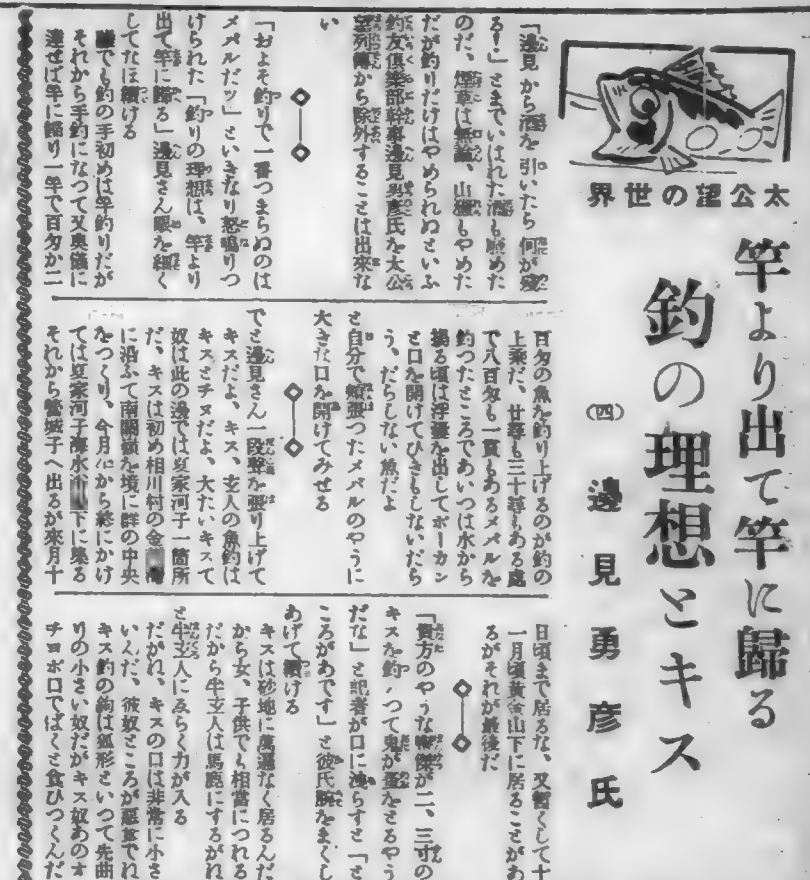 太公望の世界
竿より出て竿に歸る
釣の理想とキス
(四) 邊見勇彦氏
「邊見から酒を引いたら何が殘
る!」とまでいはれた酒も廢めた
のだ、煙草は無論、山獵もやめた
だが釣りだけはやめられぬといふ
釣友俱樂部幹事邊見勇彦氏を太公
望列傳から除外することは出來な
い
「およそ釣りで一番つまらぬのは
メバルだッ」といきなり怒鳴りつ
けられた「釣りの理想は、竿より
出て竿に歸る」邊見さん眼を細く
してなほ續ける
誰でも釣の手初めは竿釣りだが
それから手釣になつて又奧儀に
達せば竿に歸り一竿で百匁か二
百匁の魚を釣り上げるのが釣の
上乘だ、廿尋も三十尋もある處
で八百匁も一貫もあるメバルを
釣つたところであいつは水から
揚る頃は浮囊を出してポーカン
と口を開けてひきもしないだら
う、だらしない魚だよ
と自分で頰張つたメバルのやうに
大きな口を開けてみせる
でと邊見さん一段聲を張り上げて
キスだよ、キス、玄人の魚釣は
キスとチヌだよ、大たいキスて
奴は此の邊では夏家河子一箇所
だ、キスは初め相川村の金
に沿ふて南關嶺を境に群の中央
をつくり、今月から終にかけ
ては夏家河子海水浴下に集る
それから營城子へ出るが來月十
日頃まで居るな、又暫くして十
一月頃黃金山下に居ることがあ
るがそれが最後だ
「貴方のやうな豪傑が二、三寸の
キスを釣つて鬼が蚤をとるやう
だな」と記者が口に洩らすと「と
ころがあです」と彼氏腕をまくし
あげて續ける
キスは砂地に萬遍なく居るんだ
から女、子供でも相當につれる
だから半玄人は馬鹿にするがれ
と半玄人にゑらく力が入る
だがれ、キスの口は非常に小さ
いんだ、彼奴ところが惡食でれ
キス釣の鉤は狐形といつて先曲
りの小さい奴だがキス奴あのオ
チヨボ口でぱくと食ひつくんだ